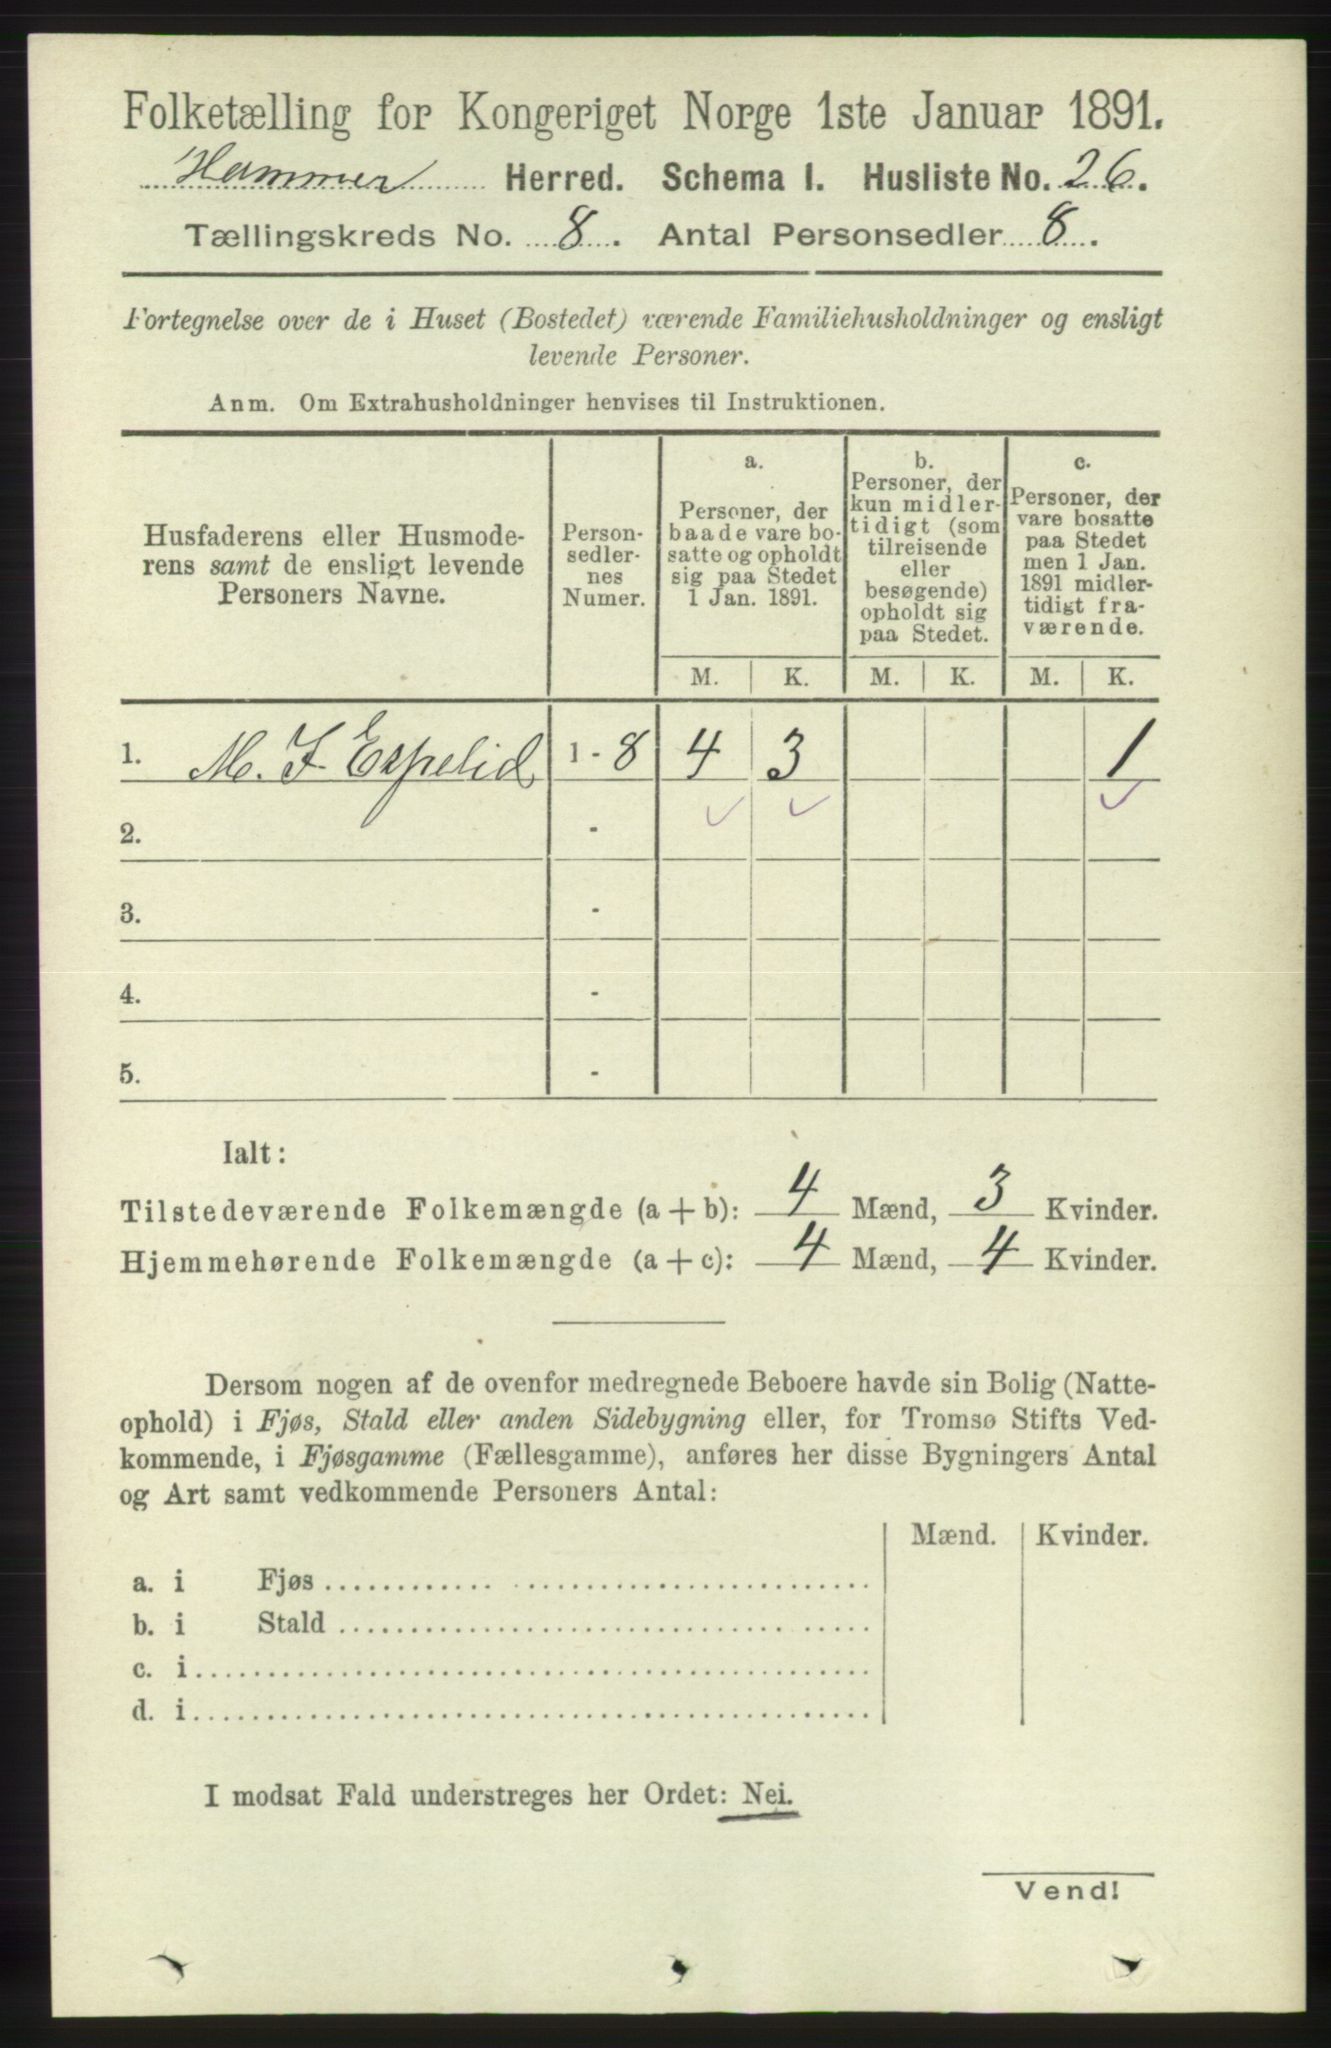 Folketælling for Kongeriget Norge 1ste Januar 1891.
Hammer Herred. Schema I. Husliste No. 26.
Tællingskreds No. 8. Antal Personsedler 8.
Fortegnelse over de i Huset (Bostedet) værende Familiehusholdninger og ensligt
levende Personer.
Anm. Om Extrahusholdninger henvises til Instruktionen.
Husfaderens eller Husmode-
rens samt de ensligt levende
Personers Navne.
Person-
sedler-
nes
Numer.
a.
Personer, der
baade vare bo-
satte og opholdt
sig paa Stedet
1 Jan. 1891.
b.
Personer, der
kun midler-
tidigt (som
tilreisende
eller
besøgende)
opholdt sig
paa Stedet.
c.
Personer, der
vare bosatte
paa Stedet
men 1 Jan.
1891 midler-
tidigt fra-
værende.
M. K. M. K. M. K.
1. M. J. Espelid 1 - 8 4 3 1
2. -
3. -
4. -
5. -
Ialt:
Tilstedeværende Folkemængde (a + b): 4 Mænd, 3 Kvinder.
Hjemmehørende Folkemængde (a + c): 4 Mænd, 4 Kvinder.
Dersom nogen af de ovenfor medregnede Beboere havde sin Bolig (Natte-
ophold) i Fjøs, Stald eller anden Sidebygning eller, for Tromsø Stifts Ved-
kommende, i Fjøsgamme (Fællesgamme), anføres her disse Bygningers Antal
og Art samt vedkommende Personers Antal:
Mænd. Kvinder.
a. i Fjøs
b. i Stald
c. i
d. i
I modsat Fald understreges her Ordet: Nei.
Vend!